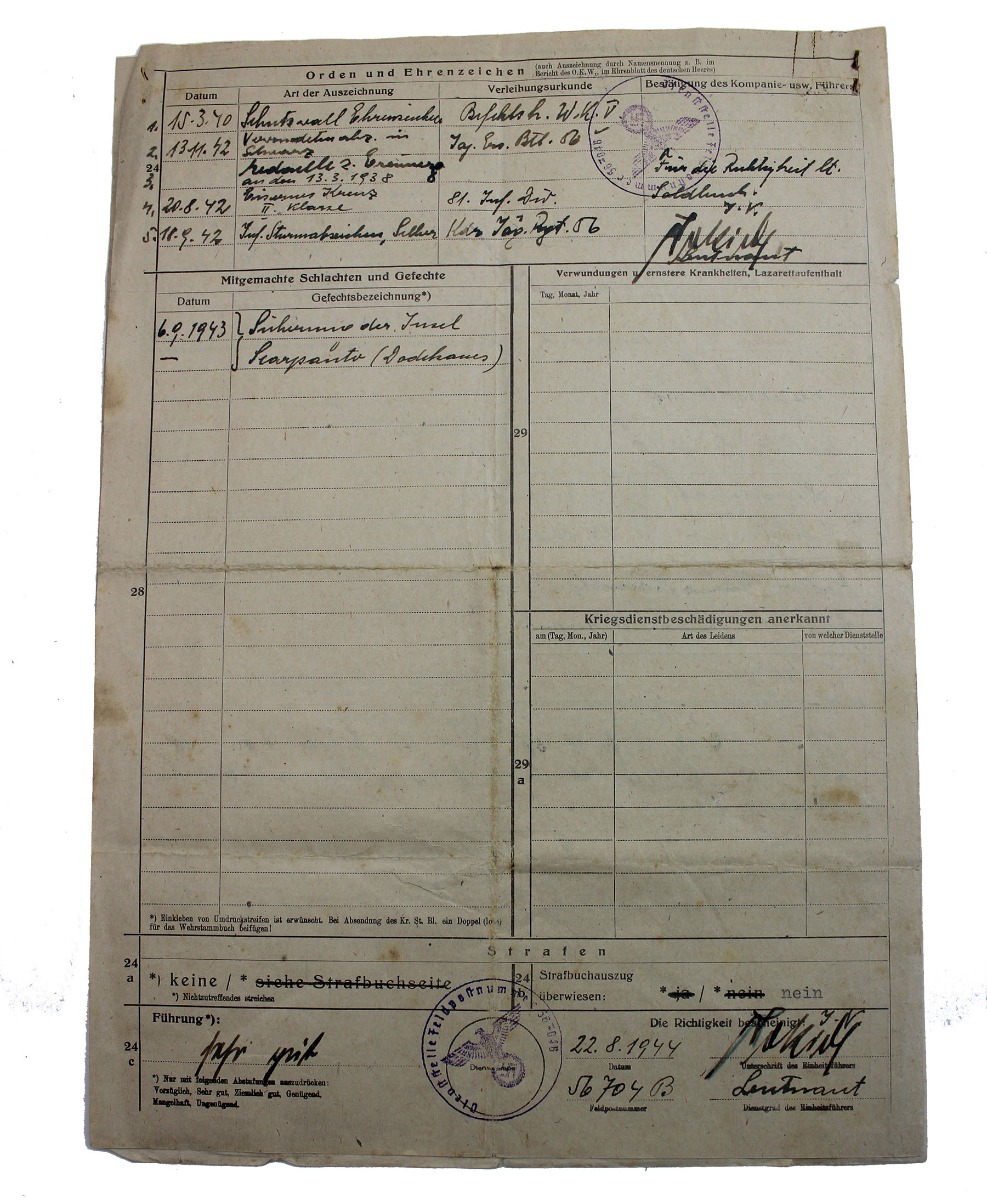 Orden und Ehrenzeichen (auch Auszeichnung durch Namensnennung z. B. im
Bericht des O.K.W., im Ehrenblatt des deutschen Heeres)
Datum Art der Auszeichnung Verleihungsurkunde Bestätigung des Kompanie- usw. Führers
1. 15.3.40 Schutzwall Ehrenzeichen Befehlsh. W.K. V
2. 13.11.42 Verwundetenabz. in Schwarz Jäg. Ers. Btl. 56
24
3. Medaille z. Erinnerg. an den 13.3.1938 Für die Richtigkeit lt.
4. 20.8.42 Eisernes Kreuz II. Klasse 81. Inf. Div. Soldbuch:
5. 18.9.42 Inf. Sturmabzeichen, Silber Kdr. Jäg. Rgt. 56
Leutnant
Mitgemachte Schlachten und Gefechte
Datum Gefechtsbezeichnung*)
6.9.1943 Sicherung der Insel
— Scarpanto (Dodekanes)
28
Verwundungen u. ernstere Krankheiten, Lazarettaufenthalt
Tag, Monat, Jahr
29
Kriegsdienstbeschädigungen anerkannt
am (Tag, Mon., Jahr) Art des Leidens von welcher Dienststelle
29
a
*) Einkleben von Umdruckstreifen ist erwünscht. Bei Absendung des Kr. St. Bl. ein Doppel (lose)
für das Wehrstammbuch beifügen!
Strafen
24
a
*) keine / * siehe Strafbuchseite
*) Nichtzutreffendes streichen
24
b
Strafbuchauszug
überwiesen: * ja / * nein nein
24
c
Führung*):
sehr gut
*) Nur mit folgenden Abstufungen auszudrücken:
Vorzüglich, Sehr gut, Ziemlich gut, Genügend,
Mangelhaft, Ungenügend.
Dienststelle Feldpostnummer
Die Richtigkeit bescheinigt:
22.8.1944
Datum
Unterschrift des Einheitsführers
56704 B
Feldpostnummer
Leutnant
Dienstgrad des Einheitsführers